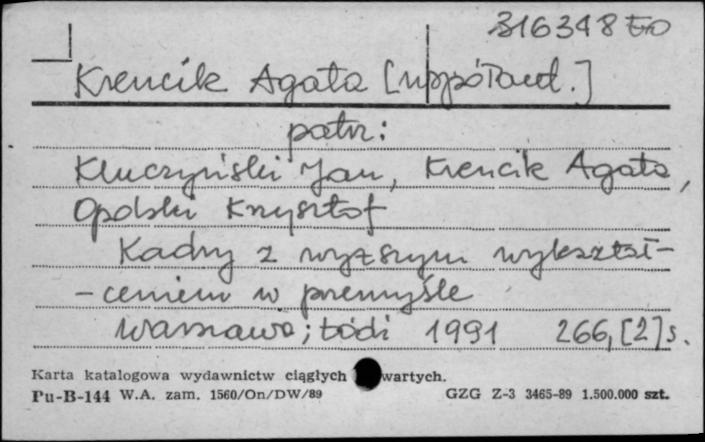 316348
Krencik Agata [współaut.]
patrz:
Kluczyński Jan, Krencik Agata,
Opolski Krzysztof
Kadry z wyższym wykształ-
-ceniem w przemyśle
Warszawa; Łódź 1991 266,[2]s.
Karta katalogowa wydawnictw ciągłych wartych.
Pu-B-144 W.A. zam. 1560/On/DW/89 GZG Z-3 3465-89 1.500.000 szt.